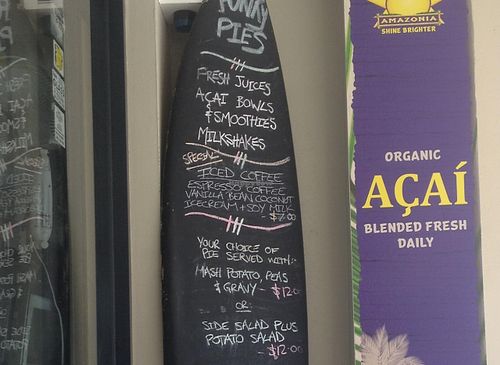 FUNKY
PIES
FRESH JUICES
AÇAI BOWLS
& SMOOTHIES
MILKSHAKES
SPECIAL
ICED COFFEE
ESPRESSO COFFEE
VANILLA BEAN COCONUT
ICECREAM + SOY MILK
- $7.00
YOUR CHOICE OF
PIE SERVED WITH:-
MASH POTATO, PEAS
& GRAVY - $12.00
OR
SIDE SALAD PLUS
POTATO SALAD
- $12.00
AMAZONIA
SHINE BRIGHTER
ORGANIC
AÇAÍ
BLENDED FRESH
DAILY